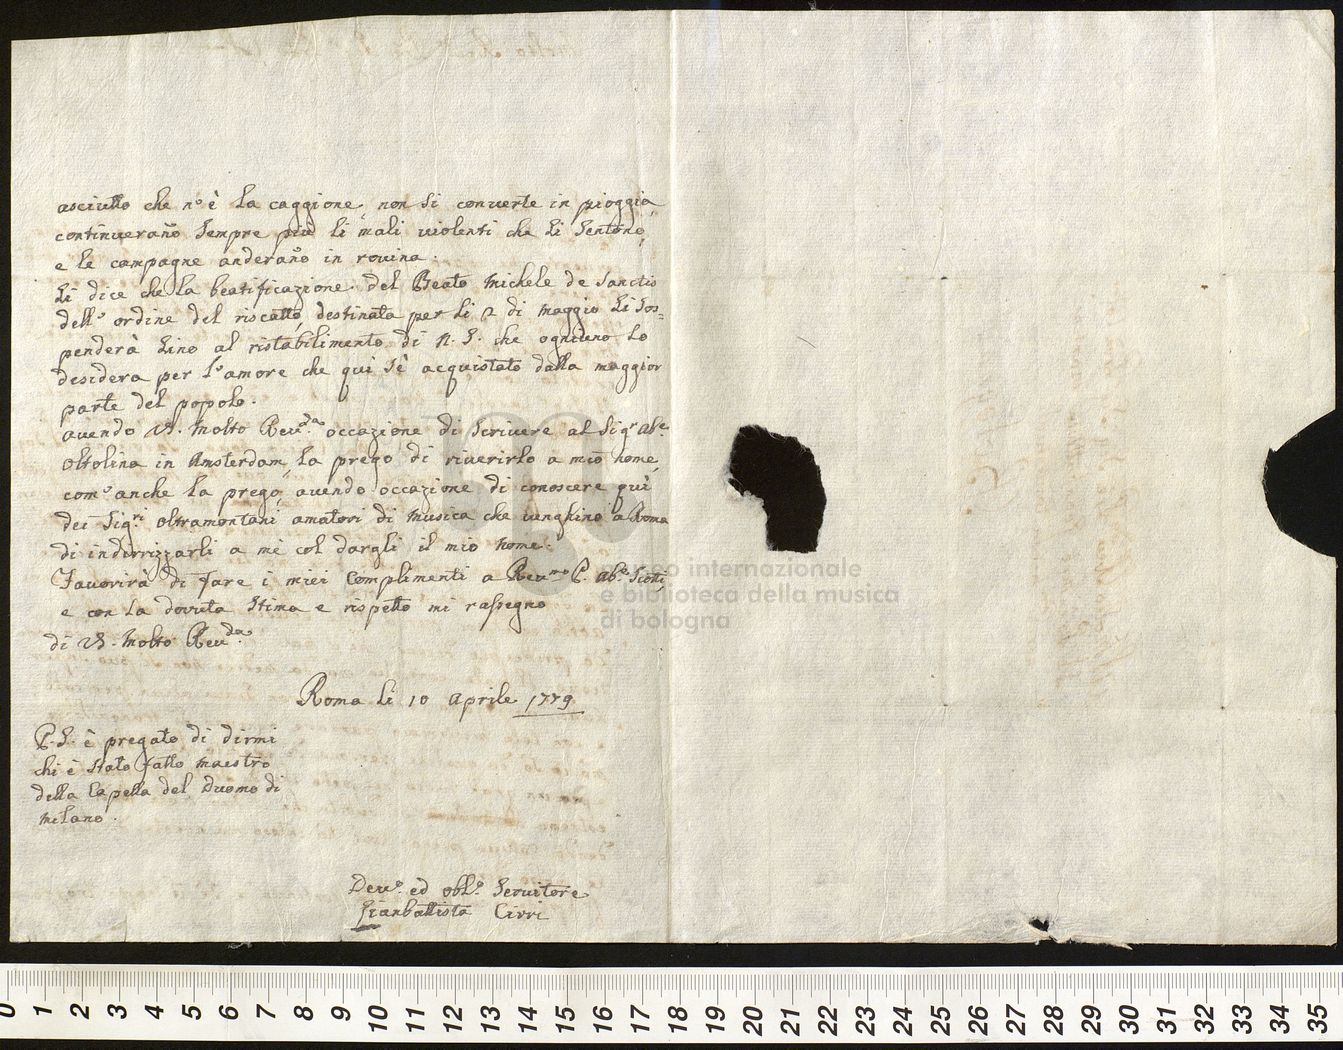 asciutto che n.º è la caggione, non si converte in pioggia,
continuerano sempre più li mali violenti che si sentono,
e le campagne anderano in rovina.
Si dice che la beatificazione del Beato Michele de Sanctis
dell'ordine del riscatto, destinata per li 2 di Maggio si sos=
penderà sino al ristabilimento di N. S. che ogniuno lo
desidera per l'amore che qui s'è acquistato dalla maggior
parte del popolo.
avendo V. Molto Rev.da occazione di scrivere al Sig.r ab.e
Ottolina in Amsterdam, la prego di riverirlo a mio nome,
com'anche la prego, avendo occazione di conoscere quì
dei Sig.ri oltramontani amatori di Musica che venghino a Roma
di indirrizzarli a mè col dargli il mio nome.
Favorirà di fare i miei Complimenti a Rev.mo P. ab.e Scotti
e con la dovuta stima e rispetto mi rassegno
di V. Molto Rev.da
Roma li 10 Aprile 1779
P.S. è pregato di dirmi
chi è stato fatto Maestro
della Capella del Duomo di
Milano.
Dev.º ed obl.º Servitore
Gianbattista Cirri
museo internazionale
e biblioteca della musica
di bologna
0 1 2 3 4 5 6 7 8 9 10 11 12 13 14 15 16 17 18 19 20 21 22 23 24 25 26 27 28 29 30 31 32 33 34 35